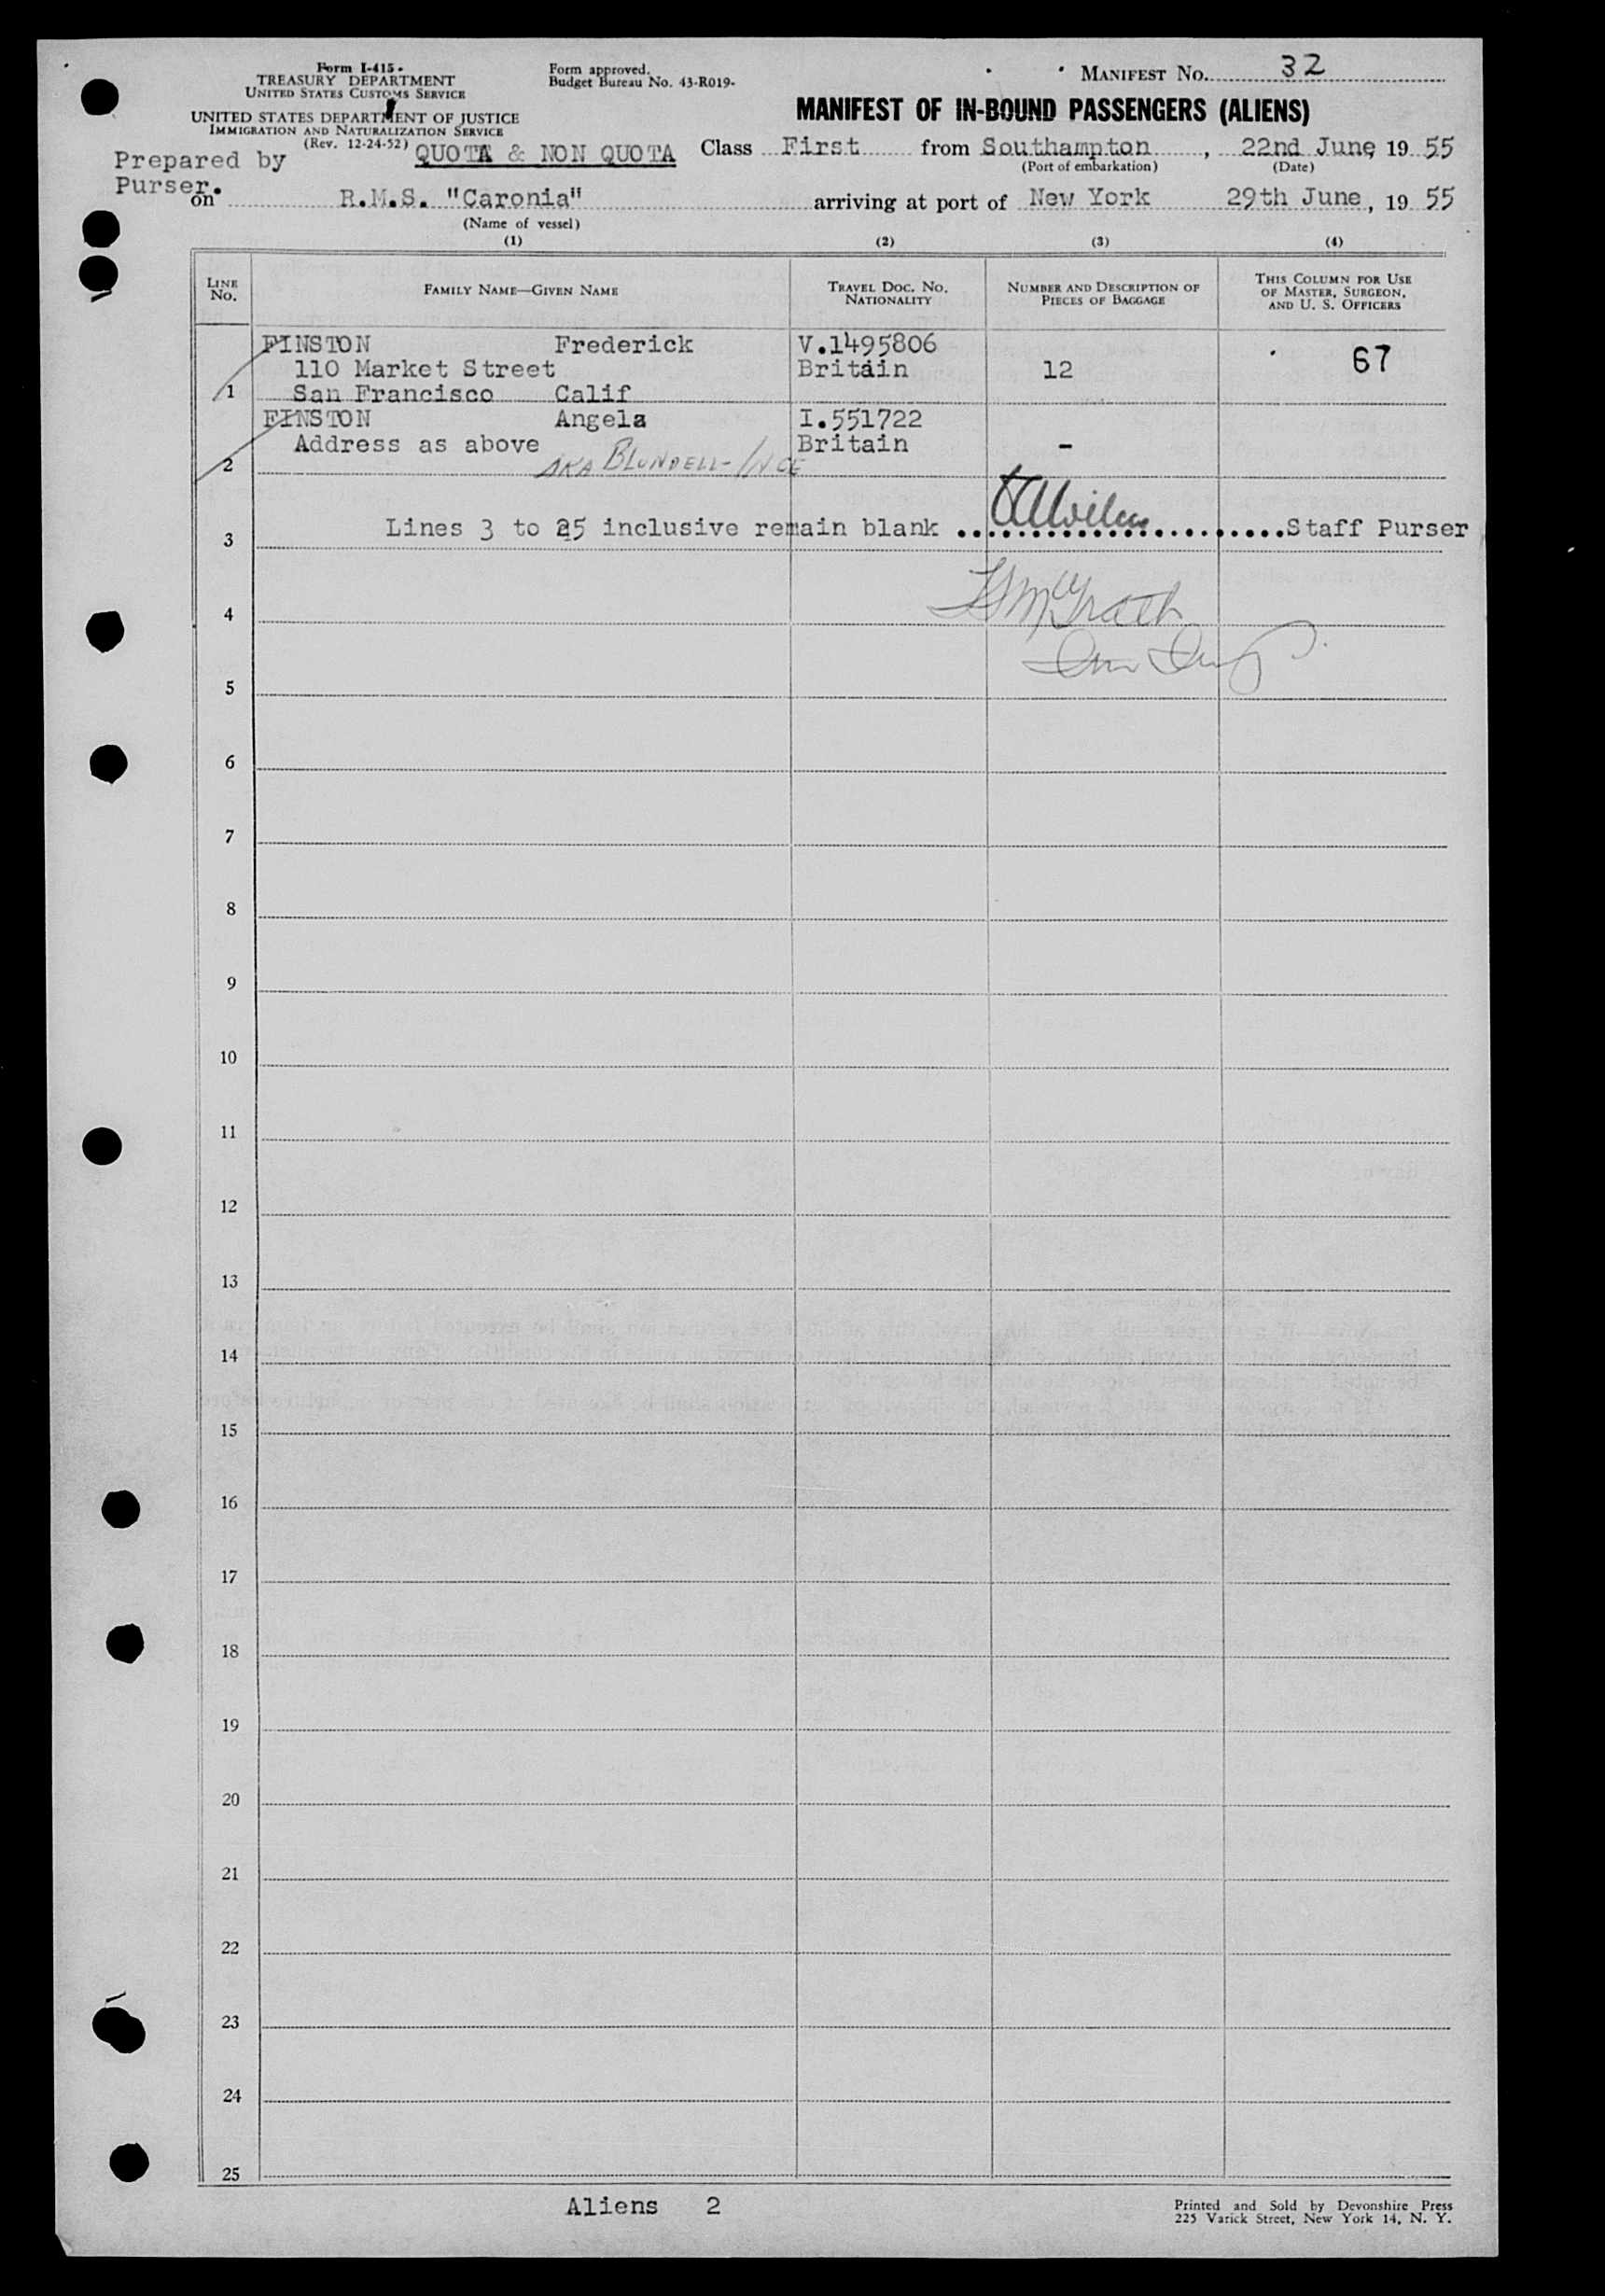 Form I-415-
TREASURY DEPARTMENT
UNITED STATES CUSTOMS SERVICE
UNITED STATES DEPARTMENT OF JUSTICE
IMMIGRATION AND NATURALIZATION SERVICE
(Rev. 12-24-52)
Form approved.
Budget Bureau No. 43-R019-
MANIFEST NO. 32
MANIFEST OF IN-BOUND PASSENGERS (ALIENS)
Prepared by
Purser.
QUOTA & NON QUOTA Class First from Southampton, 22nd June, 19 55
(Port of embarkation) (Date)
on R.M.S. "Caronia" arriving at port of New York 29th June, 19 55
(Name of vessel)
(1) (2) (3) (4)
LINE NO.
FAMILY NAME—GIVEN NAME
TRAVEL DOC. NO. NATIONALITY
NUMBER AND DESCRIPTION OF PIECES OF BAGGAGE
THIS COLUMN FOR USE OF MASTER, SURGEON, AND U. S. OFFICERS
FINSTON Frederick V.1495806
110 Market Street Britain 12 67
1 San Francisco Calif
FINSTON Angela I.551722
Address as above Britain -
2 AKA BLUNDELL-INCE
Lines 3 to 25 inclusive remain blank ....................Staff Purser
3
4
5
6
7
8
9
10
11
12
13
14
15
16
17
18
19
20
21
22
23
24
25
Aliens 2
Printed and Sold by Devonshire Press
225 Varick Street, New York 14, N. Y.